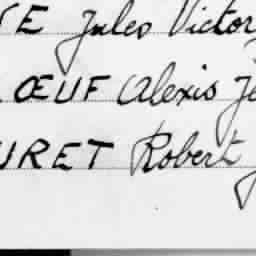 E Jules Victor
ŒUF Alexis Je
URET Robert J